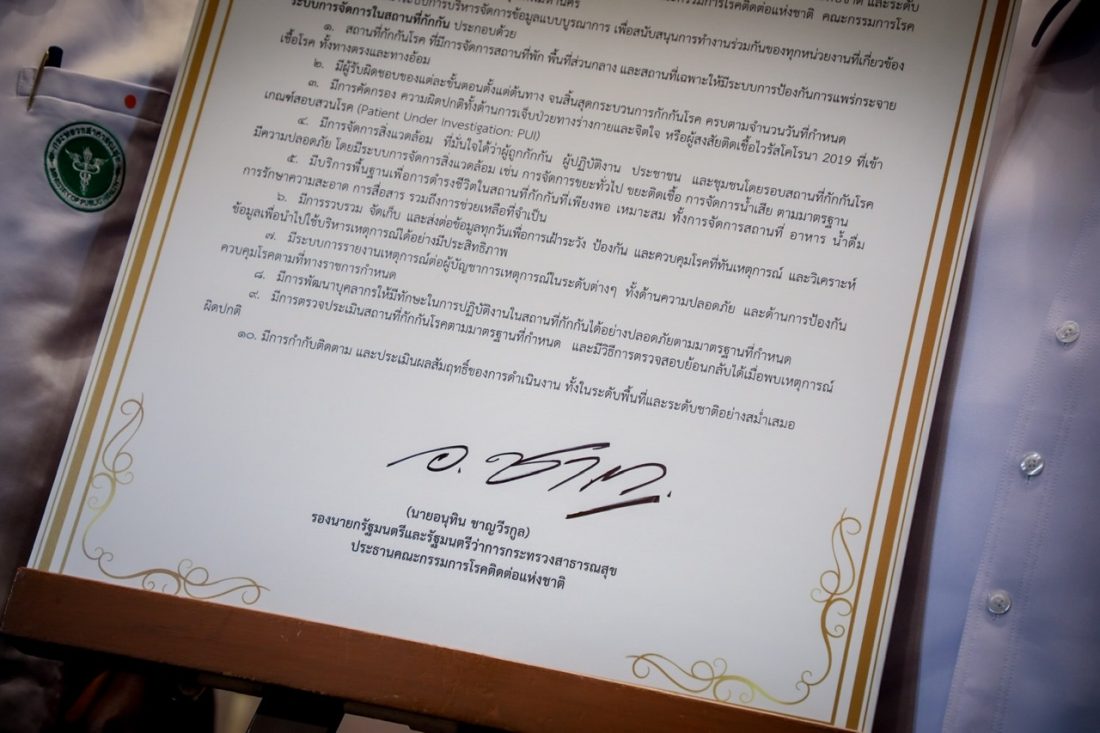 ระบบการบริหารจัดการข้อมูลแบบบูรณาการ เพื่อสนับสนุนการทำงานร่วมกันของทุกหน่วยงานที่เกี่ยวข้อง
ระบบการจัดการในสถานที่กักกัน ประกอบด้วย
๑. สถานที่กักกันโรค ที่มีการจัดการสถานที่พัก พื้นที่ส่วนกลาง และสถานที่เฉพาะให้มีระบบการป้องกันการแพร่กระจาย
เชื้อโรค ทั้งทางตรงและทางอ้อม
๒. มีผู้รับผิดชอบของแต่ละขั้นตอนตั้งแต่ต้นทาง จนสิ้นสุดกระบวนการกักกันโรค ครบตามจำนวนวันที่กำหนด
๓. มีการคัดกรอง ความผิดปกติทั้งด้านการเจ็บป่วยทางร่างกายและจิตใจ หรือผู้สงสัยติดเชื้อไวรัสโคโรนา 2019 ที่เข้า
เกณฑ์สอบสวนโรค (Patient Under Investigation: PUI)
๔. มีการจัดการสิ่งแวดล้อม ที่มั่นใจได้ว่าผู้ถูกกักกัน ผู้ปฏิบัติงาน ประชาชน และชุมชนโดยรอบสถานที่กักกันโรค
มีความปลอดภัย โดยมีระบบการจัดการสิ่งแวดล้อม เช่น การจัดการขยะทั่วไป ขยะติดเชื้อ การจัดการน้ำเสีย ตามมาตรฐาน
๕. มีบริการพื้นฐานเพื่อการดำรงชีวิตในสถานที่กักกันที่เพียงพอ เหมาะสม ทั้งการจัดการสถานที่ อาหาร น้ำดื่ม
การรักษาความสะอาด การสื่อสาร รวมถึงการช่วยเหลือที่จำเป็น
๖. มีการรวบรวม จัดเก็บ และส่งต่อข้อมูลทุกวันเพื่อการเฝ้าระวัง ป้องกัน และควบคุมโรคที่ทันเหตุการณ์ และวิเคราะห์
ข้อมูลเพื่อนำไปใช้บริหารเหตุการณ์ได้อย่างมีประสิทธิภาพ
๗. มีระบบการรายงานเหตุการณ์ต่อผู้บัญชาการเหตุการณ์ในระดับต่างๆ ทั้งด้านความปลอดภัย และด้านการป้องกัน
ควบคุมโรคตามที่ทางราชการกำหนด
๘. มีการพัฒนาบุคลากรให้มีทักษะในการปฏิบัติงานในสถานที่กักกันได้อย่างปลอดภัยตามมาตรฐานที่กำหนด
๙. มีการตรวจประเมินสถานที่กักกันโรคตามมาตรฐานที่กำหนด และมีวิธีการตรวจสอบย้อนกลับได้เมื่อพบเหตุการณ์
ผิดปกติ
๑๐. มีการกำกับติดตาม และประเมินผลสัมฤทธิ์ของการดำเนินงาน ทั้งในระดับพื้นที่และระดับชาติอย่างสม่ำเสมอ
(นายอนุทิน ชาญวีรกูล)
รองนายกรัฐมนตรีและรัฐมนตรีว่าการกระทรวงสาธารณสุข
ประธานคณะกรรมการโรคติดต่อแห่งชาติ